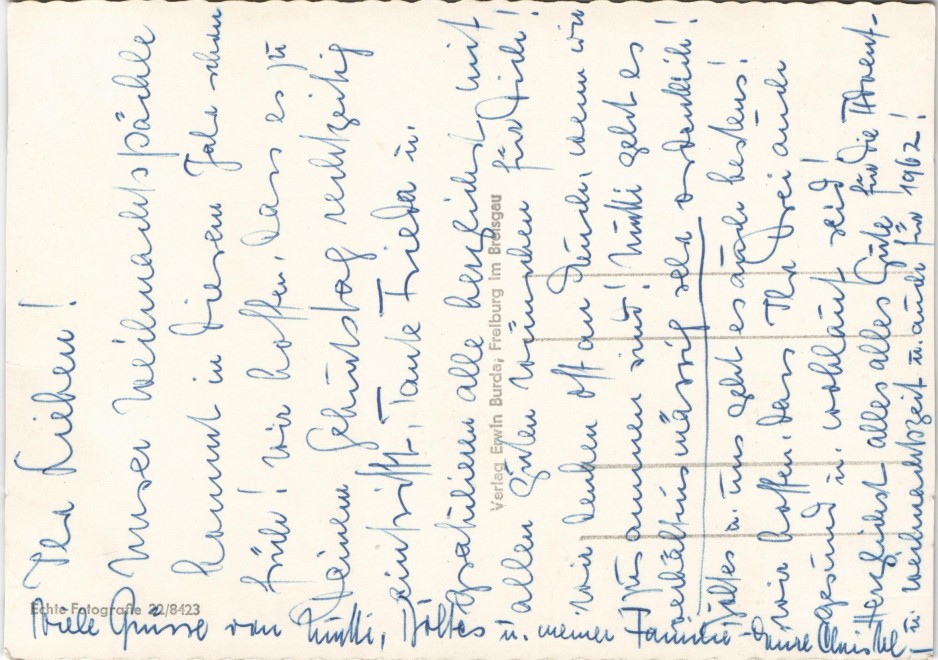 Ihr Lieben!
Unser Weihnachtspäckle
kommt in diesem Jahr schon
früh! Wir hoffen, dass es zu
Deinem Geburtstag rechtzeitig
eintrifft. Tante Frieda u.
gratulieren alle herzlichst mit
allen guten Wünschen für Dich!
Wir denken oft an Euch, wenn wir
zusammen sind! Mutti geht es
verhältnismässig sehr ordentlich!
u. uns geht es auch bestens!
Wir hoffen, dass Ihr Drei auch
gesund u. wohlauf seid!
Herzlichst alles alles Gute für die Advent-
u. Weihnachtszeit u. auch für 1962!
Viele Grüsse von Mutti, u. meiner Familie - Eure Christel. -
Verlag Erwin Burda, Freiburg im Breisgau
Echte Fotografie 22/8423